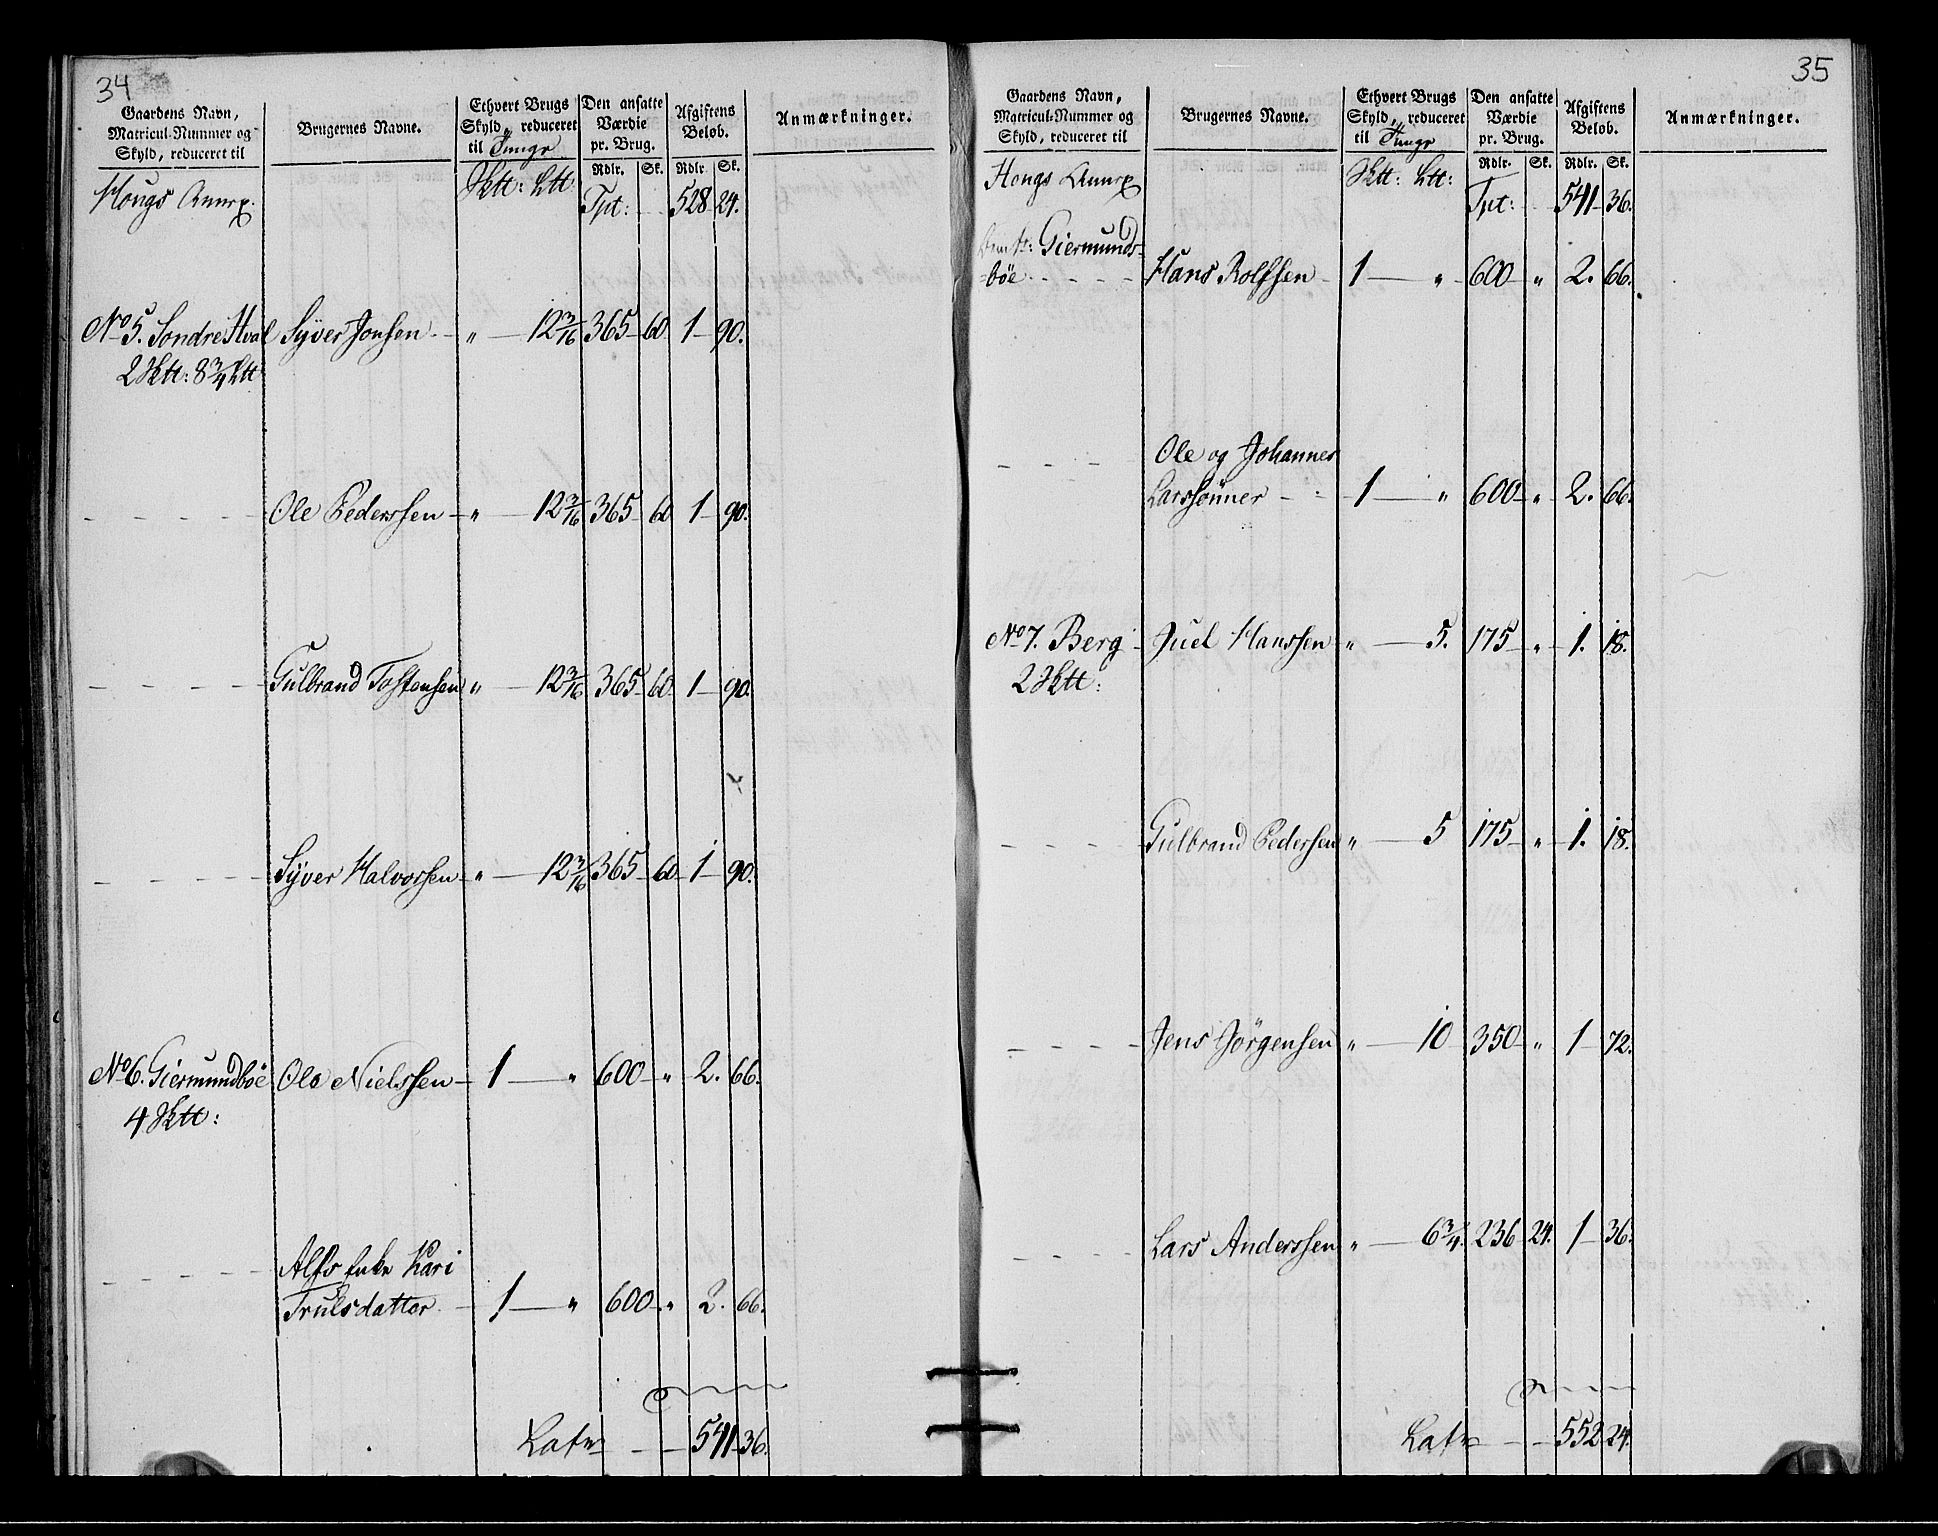 34
Gaardens Navn,
Matricul-Nummer og
Skyld, reduceret til
Brugernes Navne.
Ethvert Brugs
Skyld, reduceret
til Tunge
Den ansatte
Værdie
pr. Brug.
Afgiftens
Beløb.
Anmærkninger.
Rdlr. Sk. Rdlr. Sk.
Hougs Annex. Sktt: Ltt: Tpt: 528 24.
No 5. Søndre Hval Syver Jonsen „ 12 3/16 365 60 1 90.
2 Sktt: 8 3/4 Ltt
Ole Pederssen „ 12 3/16 365 60 1 90.
Gulbrand Tostensen „ 12 3/16 365 60. 1 90.
Syver Halvorsen „ 12 3/16 365 60 1 90.
No 6. Giermundbøe Ole Nielssen 1 „ 600 „ 2. 66.
4 Sktt:
Alfs Enke Kari
Trulsdatter 1 „ 600 „ 2. 66.
Latus 541 36.
35
Gaardens Navn,
Matricul-Nummer og
Skyld, reduceret til
Brugernes Navne.
Ethvert Brugs
Skyld, reduceret
til Tunge
Den ansatte
Værdie
pr. Brug.
Afgiftens
Beløb.
Anmærkninger.
Rdlr. Sk. Rdlr. Sk.
Hougs Annex Sktt: Ltt: Tpt: 541 36.
Giermunds-
bøe Hans Rolfsen 1 „ 600 „ 2. 66.
Ole og Johannes
Larssønner 1 „ 600 „ 2. 66.
No 7. Berg Juel Hanssen „ 5. 175 „ 1. 18.
2 Sktt:
Gulbrand Pedersen „ 5 175 „ 1. 18.
Jens Jörgensen „ 10 350 „ 1 72.
Lars Anderssen „ 6 3/4. 236 24. 1 36.
Latus 552 24.